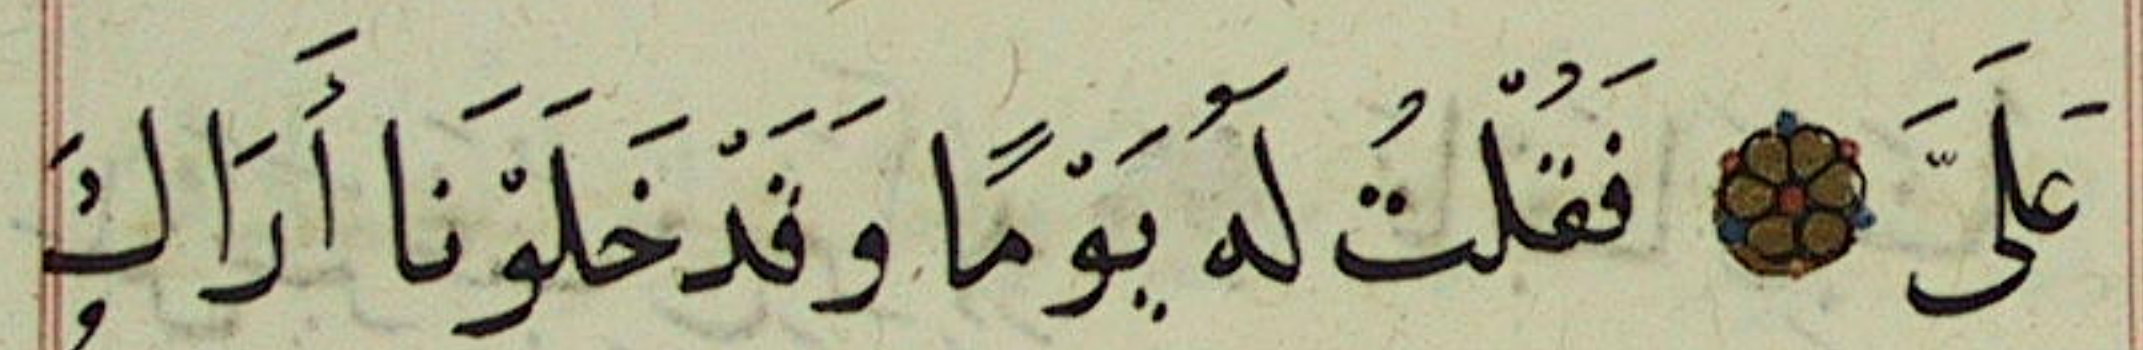 عَلَىَّ فَقُلْتُ لَهُ يَوْمًا وَقَدْ خَلَوْنَا أَرَاكَ